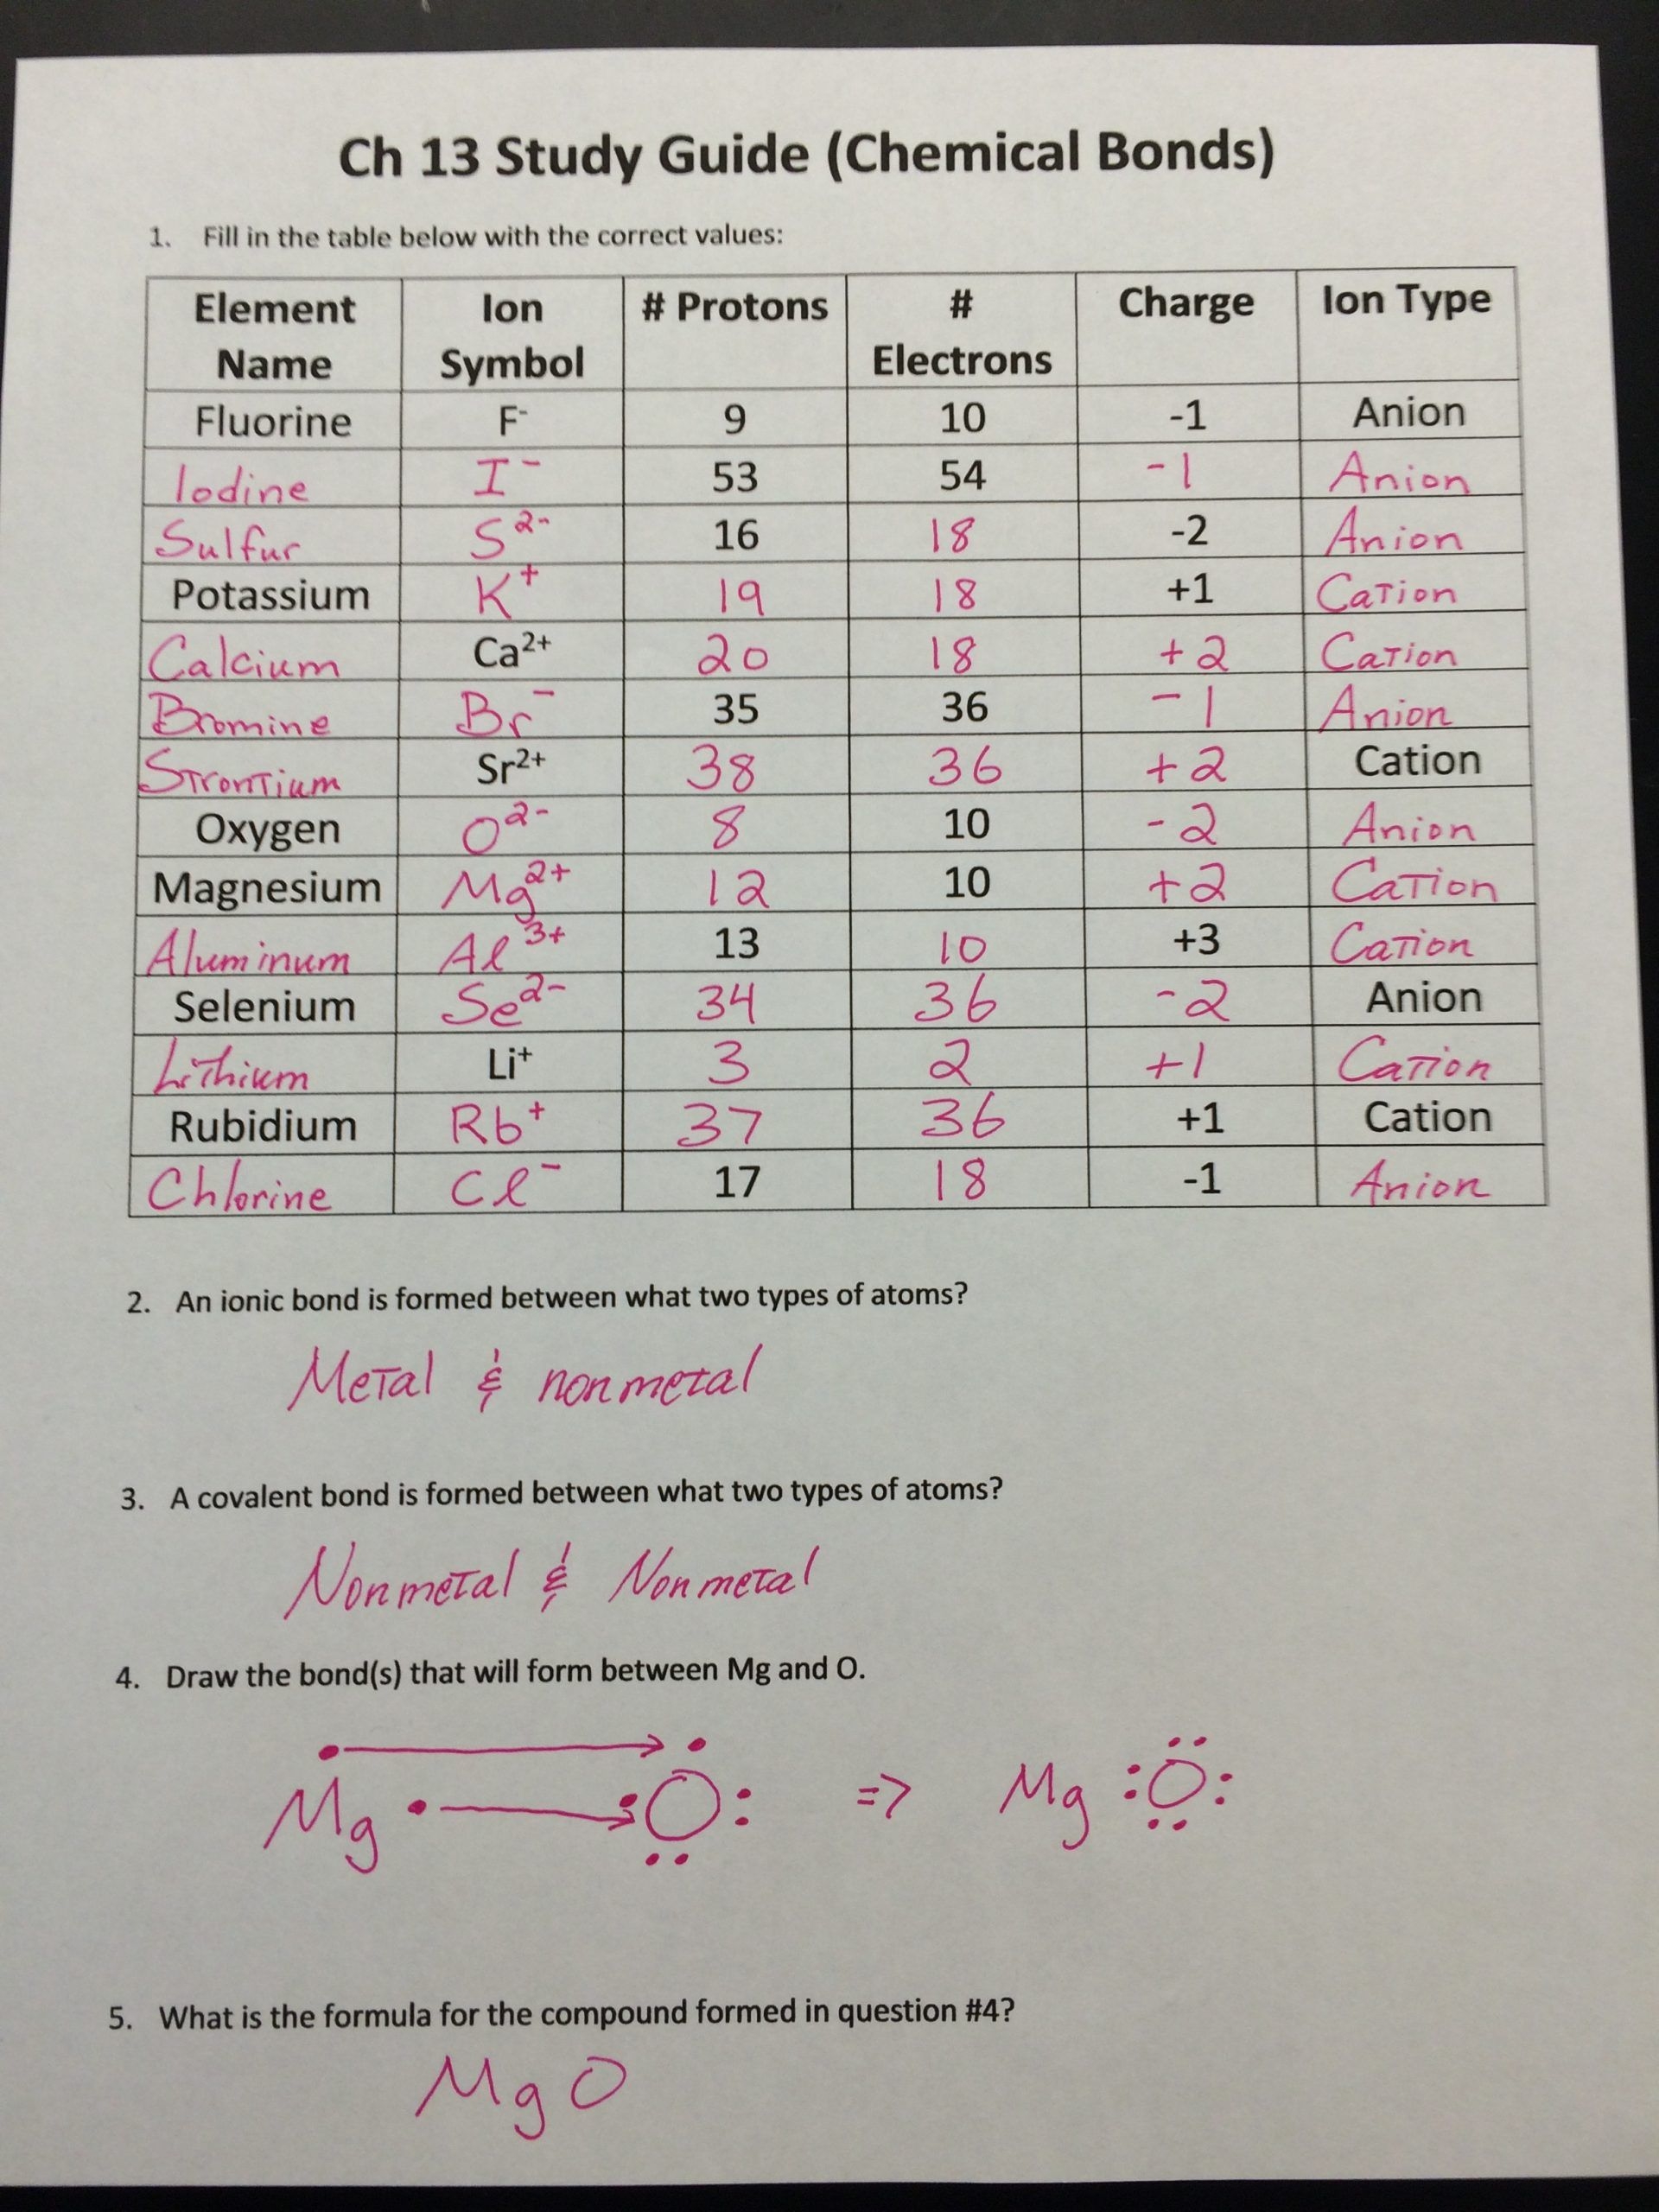 Ch 13 Study Guide (Chemical Bonds)
1. Fill in the table below with the correct values:
Element Name | Ion Symbol | # Protons | # Electrons | Charge | Ion Type
Fluorine | F⁻ | 9 | 10 | -1 | Anion
Iodine | I⁻ | 53 | 54 | -1 | Anion
Sulfur | S²⁻ | 16 | 18 | -2 | Anion
Potassium | K⁺ | 19 | 18 | +1 | Cation
Calcium | Ca²⁺ | 20 | 18 | +2 | Cation
Bromine | Br⁻ | 35 | 36 | -1 | Anion
Strontium | Sr²⁺ | 38 | 36 | +2 | Cation
Oxygen | O²⁻ | 8 | 10 | -2 | Anion
Magnesium | Mg²⁺ | 12 | 10 | +2 | Cation
Aluminum | Al³⁺ | 13 | 10 | +3 | Cation
Selenium | Se²⁻ | 34 | 36 | -2 | Anion
Lithium | Li⁺ | 3 | 2 | +1 | Cation
Rubidium | Rb⁺ | 37 | 36 | +1 | Cation
Chlorine | Cl⁻ | 17 | 18 | -1 | Anion
2. An ionic bond is formed between what two types of atoms?
Metal & nonmetal
3. A covalent bond is formed between what two types of atoms?
Nonmetal & Nonmetal
4. Draw the bond(s) that will form between Mg and O.
Mg O => Mg O
5. What is the formula for the compound formed in question #4?
MgO